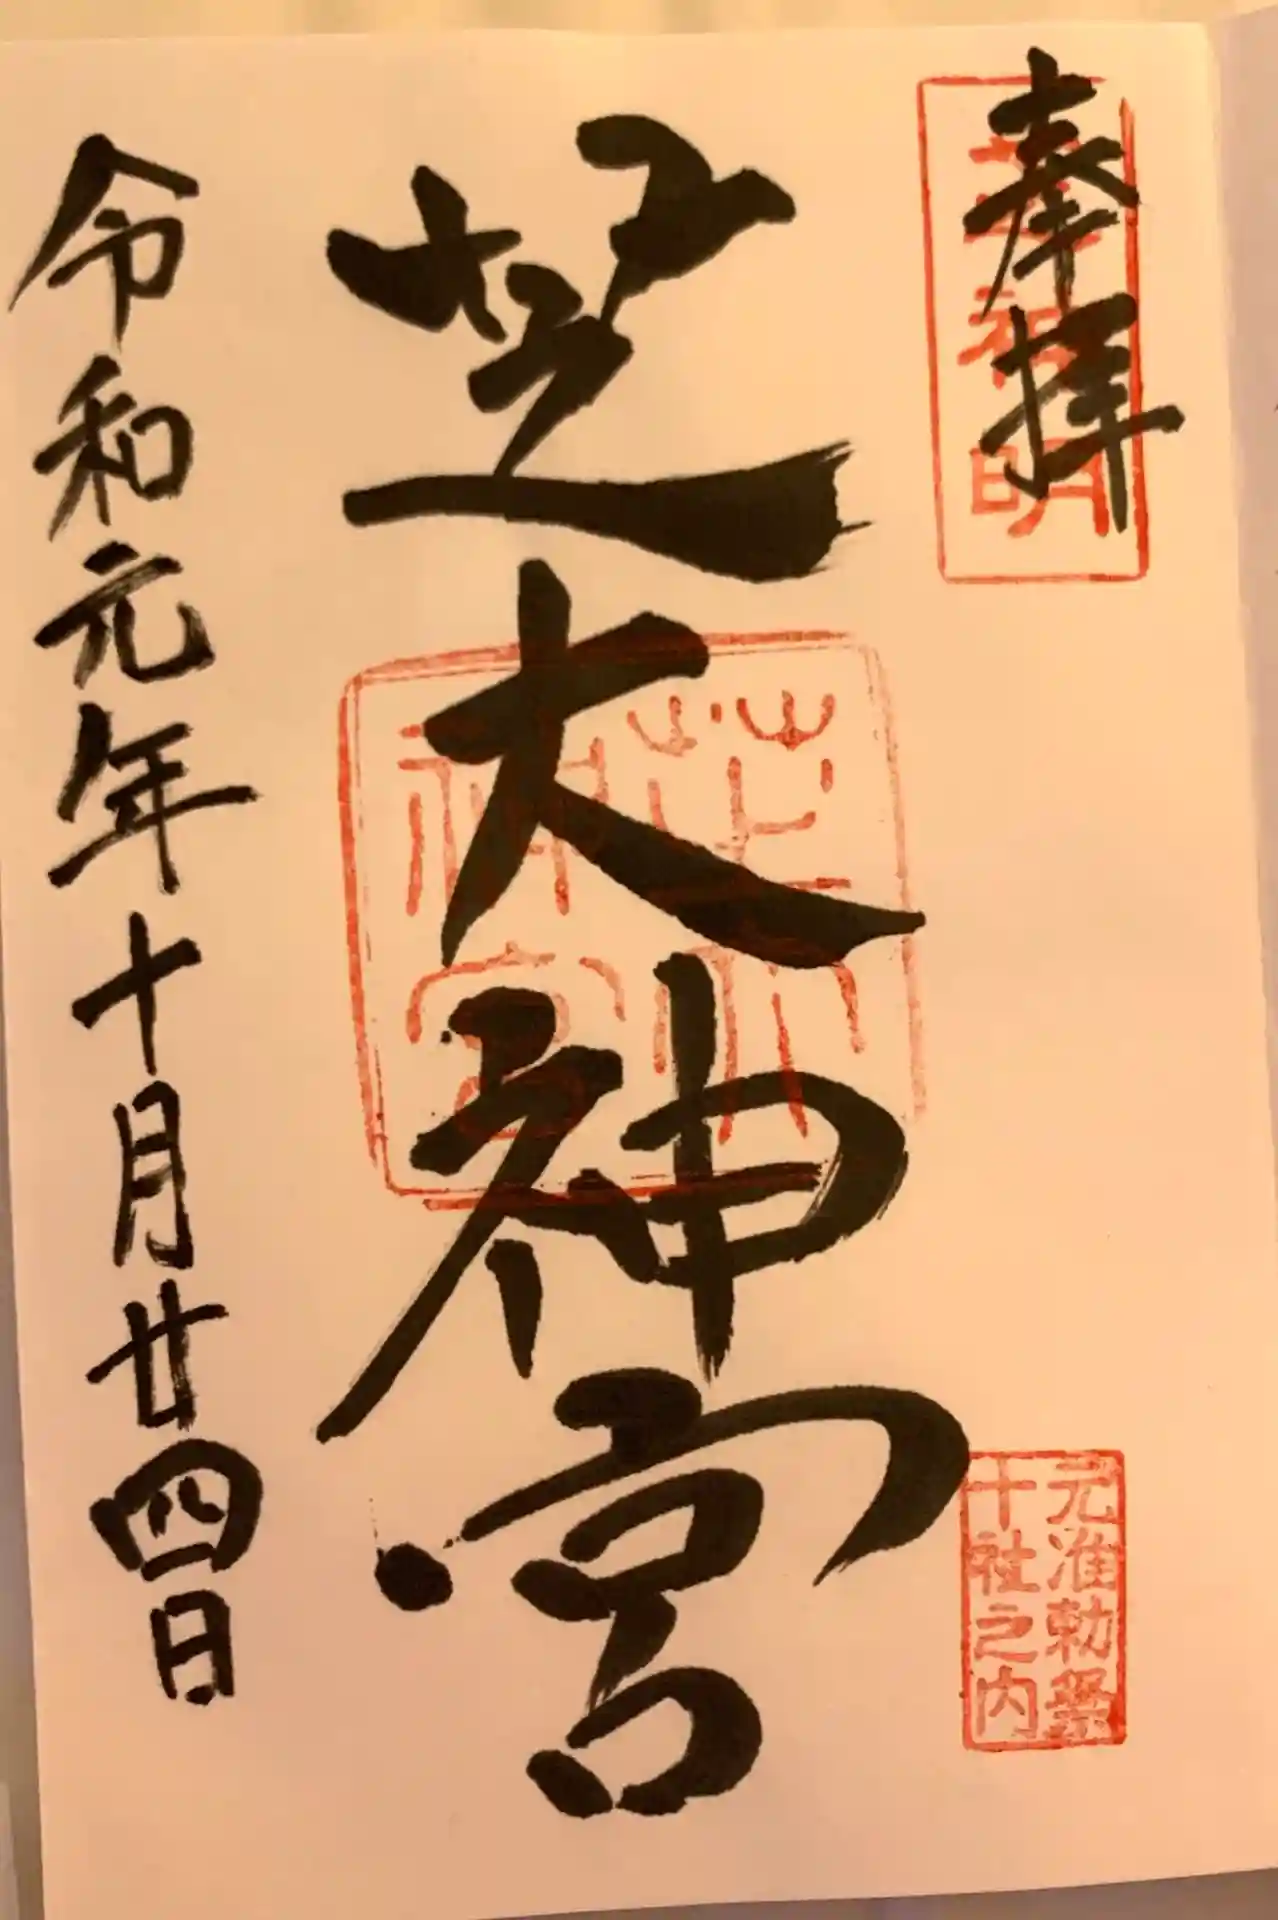 奉拝
神明
芝大神宮
芝大
神宮
元准勅祭
十社之内
令和元年十月廿四日